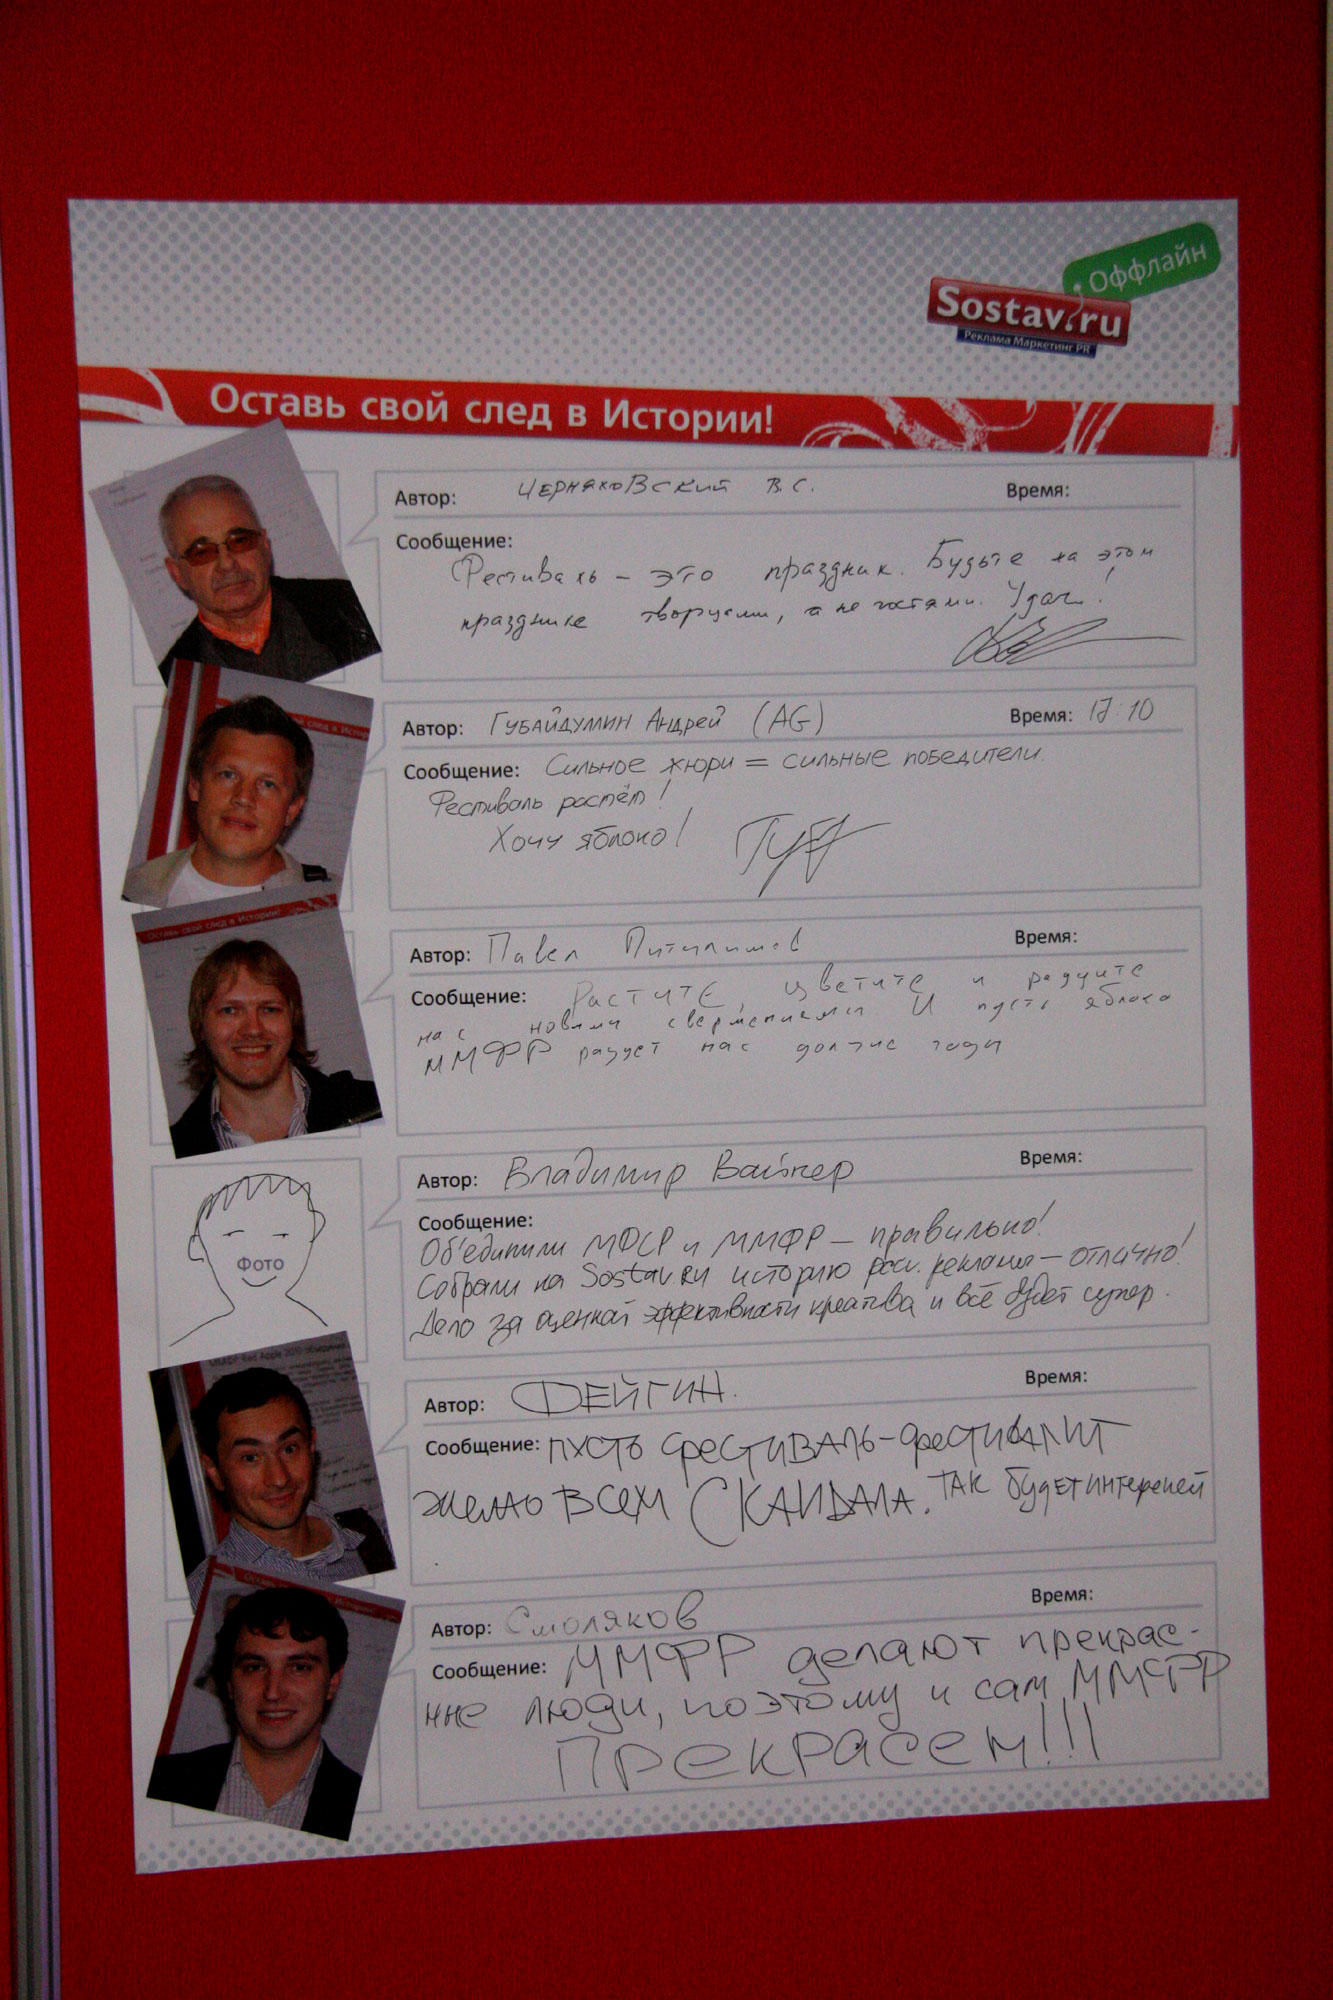 Оффлайн
Sostav.ru
Реклама Маркетинг PR
Оставь свой след в Истории!
Автор: Черняховский В.С. Время:
Сообщение:
Фестиваль – это праздник. Будьте на этом
празднике творцами, а не гостями. Удачи!
Автор: Губайдуллин Андрей (AG) Время: 17:10
Сообщение: Сильное жюри = сильные победители.
Фестиваль растёт!
Хочу яблоко!
Оставь свой след в Истории!
Автор: Павел Время:
Сообщение: Растите, цветите и радуйте
нас новыми свершениями. И пусть яблоко
ММФР радует нас долгие годы
Автор: Владимир Вайнер Время:
Фото
Сообщение:
Объединили МФСР и ММФР – правильно!
Собрали на Sostav.ru историю росс. рекламы – отлично!
Дело за оценкой эффективности креатива и всё будет супер.
Автор: Фейгин. Время:
Сообщение: пусть фестиваль-фестивалит
желаю всем скандала. Так будет интересней
Автор: Смоляков Время:
Сообщение: ММФР делают прекрас-
ные люди, поэтому и сам ММФР
Прекрасен!!!